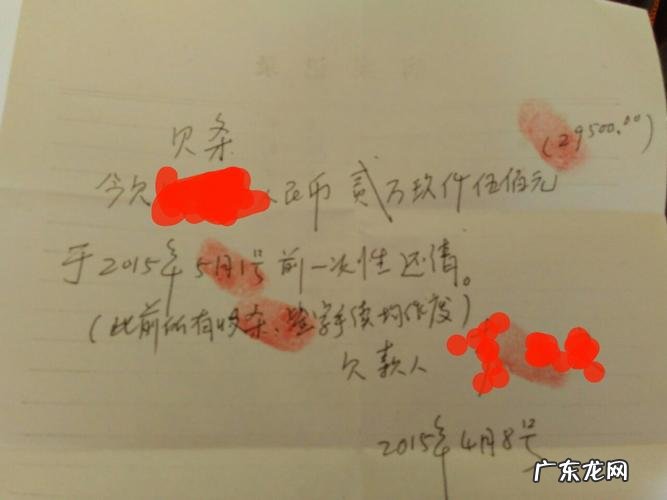 欠条
(29500.00)
今欠 人民币贰万玖仟伍佰元
于2015年5月1号前一次性还清。
(此前所有收条、签字手续均作废)
欠款人
2015年4月8号
广东龙网